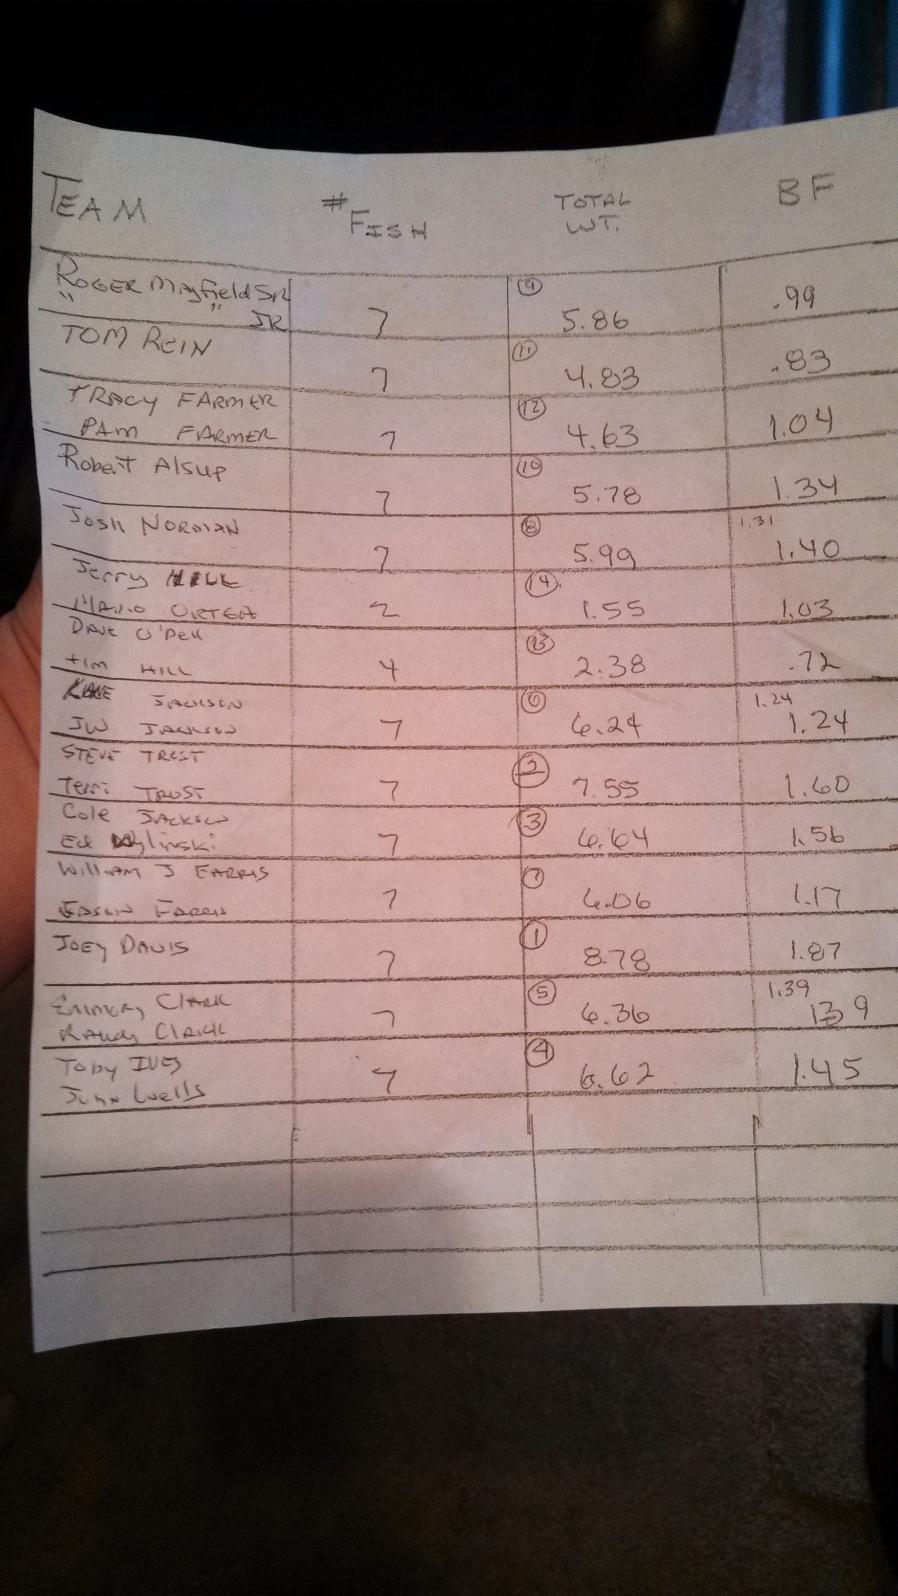 TEAM # FISH TOTAL WT. BF
ROGER Mayfield SR ⑨ .99
" " JR 7 5.86
TOM REIN ⑪ .83
7 4.83
TRACY FARMER ⑫
PAM FARMER 7 4.63 1.04
Robert Alsup ⑩
7 5.78 1.34
JOSH NORMAN ⑧ 1.31
7 5.99 1.40
Jerry HILL ⑭
MARIO ORTEGA 2 1.55 1.03
DAVE O'Pell ⑬
TIM HILL 4 2.38 .72
JACKSON ⑥ 1.24
JW JACKSON 7 6.24 1.24
STEVE TRUST ②
Terri TRUST 7 7.55 1.60
Cole JACKSON ③
Ed 7 6.64 1.56
William J FARRIS ⑦
JASON FARRIS 7 6.06 1.17
JOEY DAVIS ①
7 8.78 1.87
Emmory CLARK ⑤ 1.39
RANDY CLARK 7 6.36 139
Toby IVES ④
JOHN Wells 7 6.62 1.45